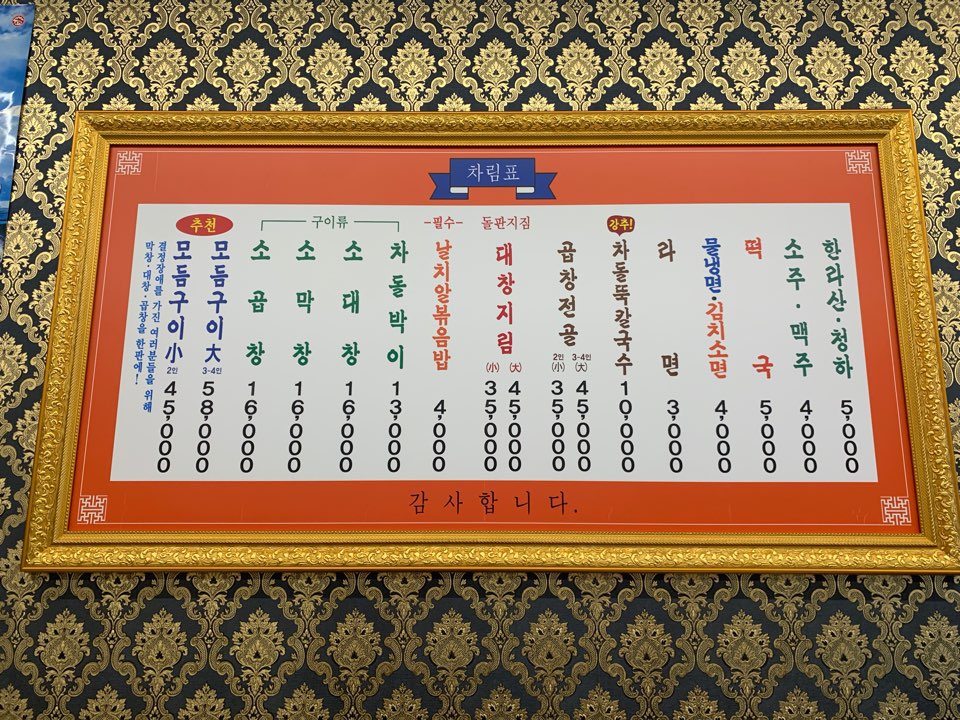 차림표
추천
구이류
-필수-
돌판지짐
강추!
결정장애를 가진 여러분들을 위해
막창·대창·곱창을 한판에!
모듬구이 小 2인 45,000
모듬구이 大 3-4인 58,000
소곱창 16,000
소막창 16,000
소대창 16,000
차돌박이 13,000
날치알볶음밥 4,000
대창지림 (小) 35,000 (大) 45,000
곱창전골 2인 (小) 35,000 3-4인 (大) 45,000
차돌뚝칼국수 10,000
라면 3,000
물냉면·김치소면 4,000
떡국 5,000
소주·맥주 4,000
한라산·청하 5,000
감사합니다.